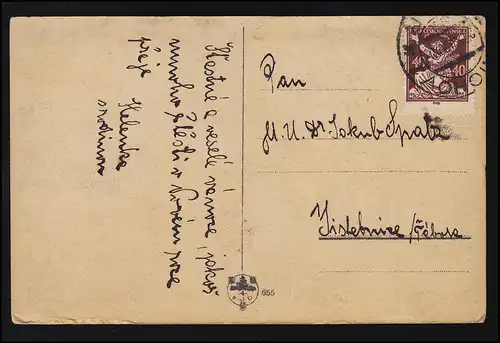 Šťastné a veselé vánoce, jakož
mnoho štěstí v Novém roce
přeje
Helenka
s rodinou
Pan
M.U.Dr. Jakub Spatz
Jistebnice
655
40 40